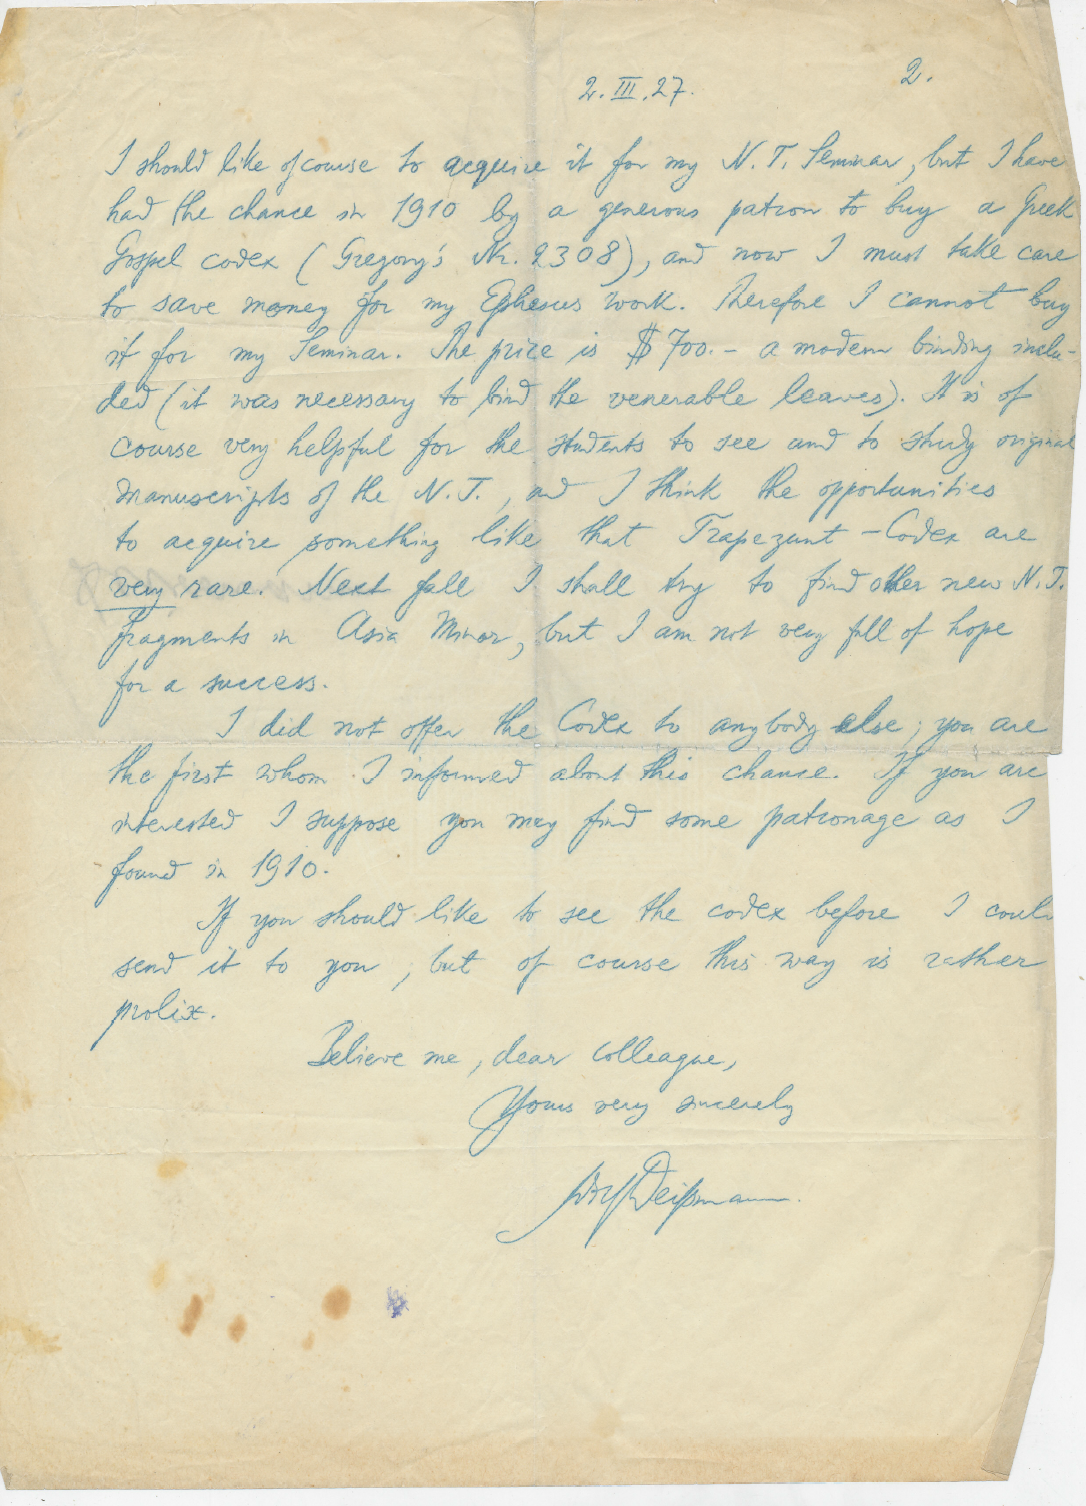 2. III. 27.
2.
I should like of course to acquire it for my N. T. Seminar, but I have
had the chance in 1910 by a generous patron to buy a Greek
Gospel codex (Gregory's Nr. 2308), and now I must take care
to save money for my Ephesus work. Therefore I cannot buy
it for my Seminar. The price is $ 700.- a modern binding inclu-
ded (it was necessary to bind the venerable leaves). It is of
course very helpful for the students to see and to study original
manuscripts of the N. T., and I think the opportunities
to acquire something like that Trapezunt-Codex are
very rare. Next fall I shall try to find other new N. T.
fragments in Asia Minor, but I am not very full of hope
for a success.
I did not offer the Codex to anybody else; you are
the first whom I informed about this chance. If you are
interested I suppose you may find some patronage as I
found in 1910.
If you should like to see the codex before I could
send it to you, but of course this way is rather
prolix.
Believe me, dear colleague,
Yours very sincerely
Deißmann.